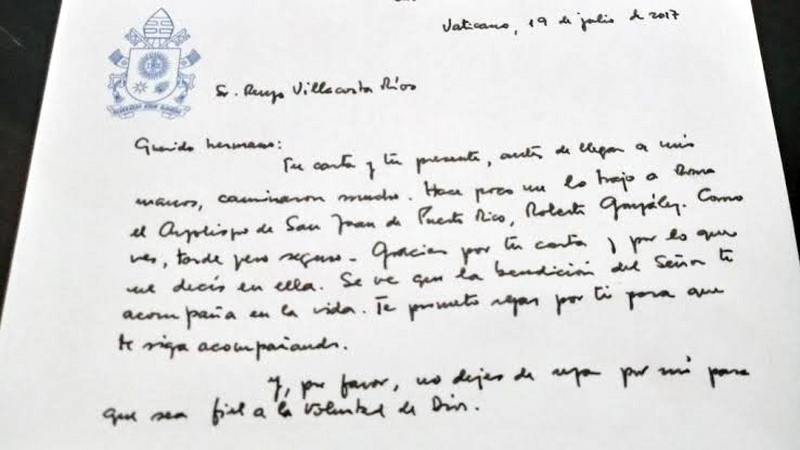 Vaticano, 19 de julio de 2017
Sr. Villacosta Ríos
Querido hermano:
Tu carta y tu presente, antes de llegar a mis
manos, caminaron mucho. Hace poco me lo trajo a Roma
el Arzobispo de San Juan de Puerto Rico, Roberto González. Como
ves, tarde pero seguro. Gracias por tu carta y por lo que
me decís en ella. Se ve que la bendición del Señor te
acompaña en la vida. Te prometo rezar por ti para que
te siga acompañando.
Y, por favor, no dejes de rezar por mí para
que sea fiel a la voluntad de Dios.